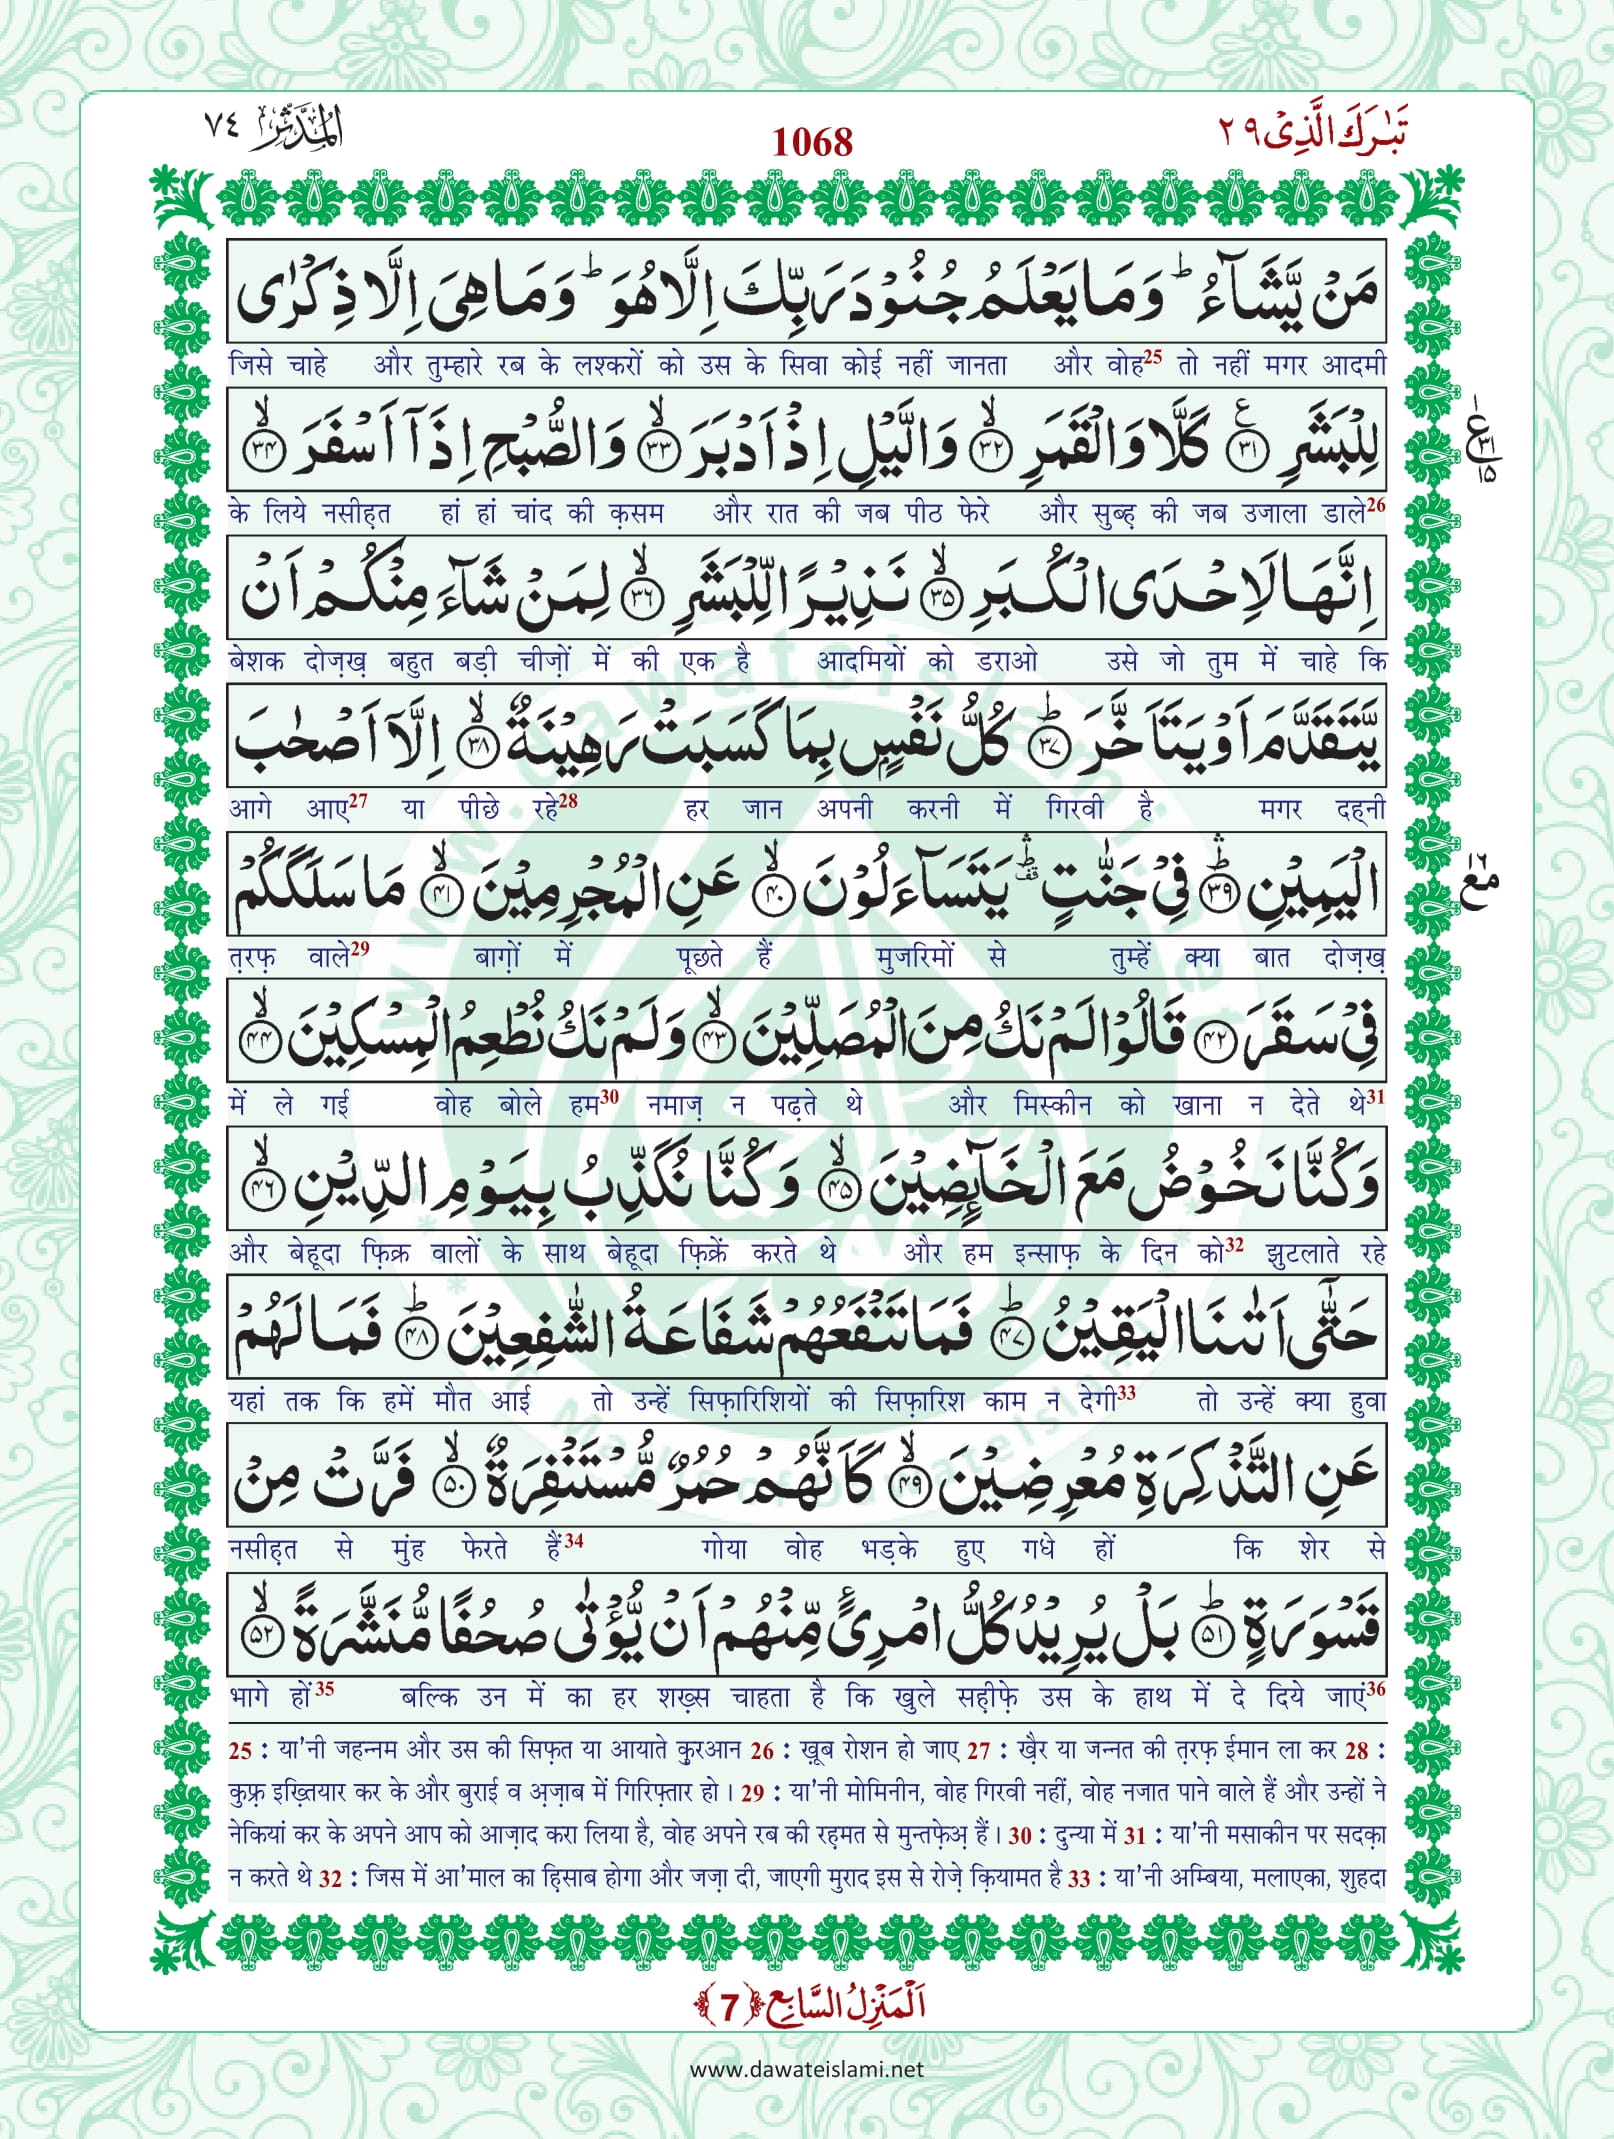 اَلْمُدَّثِّر ٧٤
1068
تَبٰرَكَ الَّذِیْ ٢٩
مَنْ یَّشَآءُ ؕ وَ مَا یَعْلَمُ جُنُوْدَ رَبِّكَ اِلَّا هُوَ ؕ وَ مَا هِیَ اِلَّا ذِكْرٰى
जिसे चाहे और तुम्हारे रब के लश्करों को उस के सिवा कोई नहीं जानता और वोह25 तो नहीं मगर आदमी
لِلْبَشَرِ ﴿۳۱﴾ۧ كَلَّا وَ الْقَمَرِ ﴿۳۲﴾ۙ وَ الَّیْلِ اِذْ اَدْبَرَ ﴿۳۳﴾ۙ وَ الصُّبْحِ اِذَاۤ اَسْفَرَ ﴿۳۴﴾ۙ
ع ٣١ ١٥
के लिये नसीह़त हां हां चांद की क़सम और रात की जब पीठ फेरे और सुब्ह़ की जब उजाला डाले26
اِنَّهَا لَاِحْدَى الْكُبَرِ ﴿۳۵﴾ۙ نَذِیْرًا لِّلْبَشَرِ ﴿۳۶﴾ۙ لِمَنْ شَآءَ مِنْكُمْ اَنْ
बेशक दोज़ख़ बहुत बड़ी चीज़ों में की एक है आदमियों को डराओ उसे जो तुम में चाहे कि
یَّتَقَدَّمَ اَوْ یَتَاَخَّرَ ﴿۳۷﴾ؕ كُلُّ نَفْسٍۭ بِمَا كَسَبَتْ رَهِیْنَةٌ ﴿۳۸﴾ۙ اِلَّاۤ اَصْحٰبَ
आगे आए27 या पीछे रहे28 हर जान अपनी करनी में गिरवी है मगर दह्नी
الْیَمِیْنِ ﴿۳۹﴾ؕۛ فِیْ جَنّٰتٍ ؕۛ۫ یَتَسَآءَلُوْنَ ﴿۴۰﴾ۙ عَنِ الْمُجْرِمِیْنَ ﴿۴۱﴾ۙ مَا سَلَكَكُمْ
مع ١٦
त़रफ़ वाले29 बाग़ों में पूछते हैं मुजरिमों से तुम्हें क्या बात दोज़ख़
فِیْ سَقَرَ ﴿۴۲﴾ قَالُوْا لَمْ نَكُ مِنَ الْمُصَلِّیْنَ ﴿۴۳﴾ۙ وَ لَمْ نَكُ نُطْعِمُ الْمِسْكِیْنَ ﴿۴۴﴾ۙ
में ले गई वोह बोले हम30 नमाज़ न पढ़ते थे और मिस्कीन को खाना न देते थे31
وَ كُنَّا نَخُوْضُ مَعَ الْخَآىٕضِیْنَ ﴿۴۵﴾ۙ وَ كُنَّا نُكَذِّبُ بِیَوْمِ الدِّیْنِ ﴿۴۶﴾ۙ
और बेहूदा फ़िक्र वालों के साथ बेहूदा फ़िक्रें करते थे और हम इन्साफ़ के दिन को32 झुटलाते रहे
حَتّٰۤى اَتٰىنَا الْیَقِیْنُ ﴿۴۷﴾ؕ فَمَا تَنْفَعُهُمْ شَفَاعَةُ الشّٰفِعِیْنَ ﴿۴۸﴾ؕ فَمَا لَهُمْ
यहां तक कि हमें मौत आई तो उन्हें सिफ़ारिशियों की सिफ़ारिश काम न देगी33 तो उन्हें क्या हुवा
عَنِ التَّذْكِرَةِ مُعْرِضِیْنَ ﴿۴۹﴾ۙ كَاَنَّهُمْ حُمُرٌ مُّسْتَنْفِرَةٌ ﴿۵۰﴾ۙ فَرَّتْ مِنْ
नसीह़त से मुंह फेरते हैं34 गोया वोह भड़के हुए गधे हों कि शेर से
قَسْوَرَةٍ ﴿۵۱﴾ؕ بَلْ یُرِیْدُ كُلُّ امْرِئٍ مِّنْهُمْ اَنْ یُّؤْتٰى صُحُفًا مُّنَشَّرَةً ﴿۵۲﴾ۙ
भागे हों35 बल्कि उन में का हर शख़्स चाहता है कि खुले सह़ीफ़े उस के हाथ में दे दिये जाएं36
25 : या'नी जहन्नम और उस की सिफ़त या आयाते क़ुरआन 26 : ख़ूब रोशन हो जाए 27 : ख़ैर या जन्नत की त़रफ़ ईमान ला कर 28 :
कुफ़्र इख़्तियार कर के और बुराई व अ़ज़ाब में गिरिफ़्तार हो । 29 : या'नी मोमिनीन, वोह गिरवी नहीं, वोह नजात पाने वाले हैं और उन्हों ने
नेकियां कर के अपने आप को आज़ाद करा लिया है, वोह अपने रब की रह़मत से मुन्तफ़ेअ़ हैं । 30 : दुन्या में 31 : या'नी मसाकीन पर सदक़ा
न करते थे 32 : जिस में आ'माल का ह़िसाब होगा और जज़ा दी, जाएगी मुराद इस से रोज़े क़ियामत है 33 : या'नी अम्बिया, मलाएका, शुहदा
اَلْمَنْزِلُ السَّابِع ﴿7﴾
www.dawateislami.net